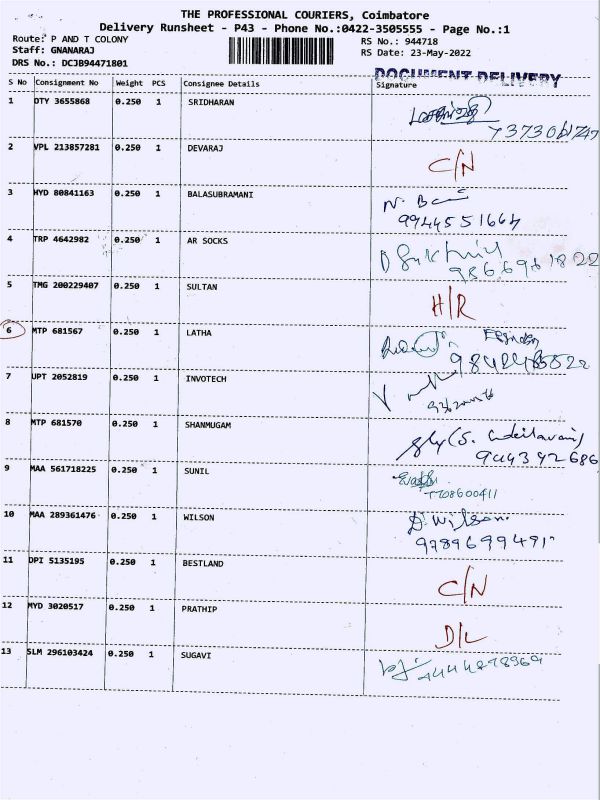 THE PROFESSIONAL COURIERS, Coimbatore
Delivery Runsheet - P43 - Phone No.:0422-3505555 - Page No.:1
Route: P AND T COLONY RS No.: 944718
Staff: GNANARAJ RS Date: 23-May-2022
DRS No.: DCJB94471801
DOCUMENT DELIVERY
S No Consignment No Weight PCS Consignee Details Signature
1 DTY 3655868 0.250 1 SRIDHARAN
2 VPL 213857281 0.250 1 DEVARAJ C/N
3 HYD 80841163 0.250 1 BALASUBRAMANI
9944551664
4 TRP 4642982 0.250 1 AR SOCKS
5 TMG 200229407 0.250 1 SULTAN H/R
6 MTP 681567 0.250 1 LATHA
7 UPT 2052819 0.250 1 INVOTECH
8 MTP 681570 0.250 1 SHANMUGAM
9443392686
9 MAA 561718225 0.250 1 SUNIL
7708600411
10 MAA 289361476 0.250 1 WILSON D. Wilson
11 DPI 5135195 0.250 1 BESTLAND C/N
12 MYD 3020517 0.250 1 PRATHIP D/L
13 SLM 296103424 0.250 1 SUGAVI